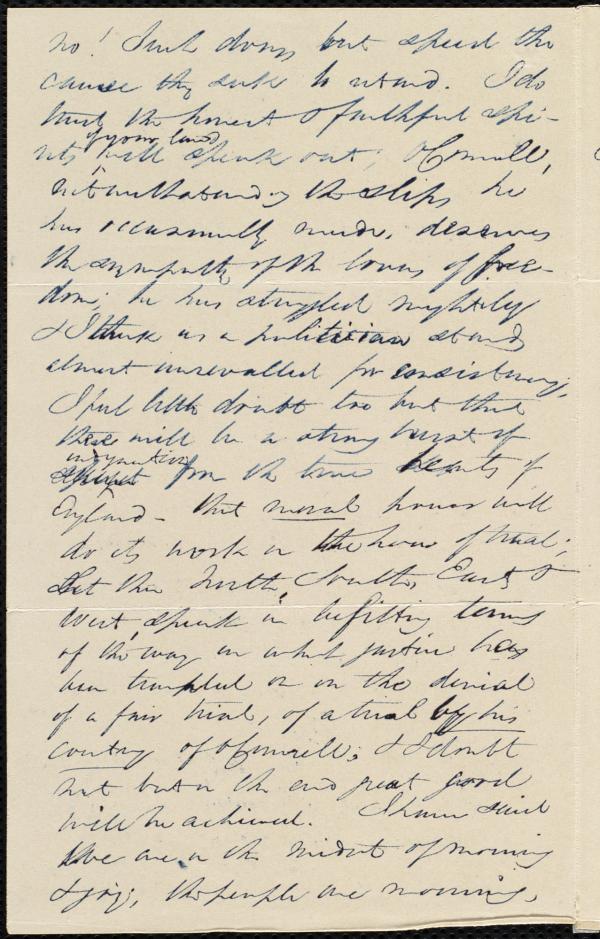 no! Such doings but speed the
cause they seek to retard. I do
trust the honest & faithful spi-
of your land
rits will speak out; O'Connell,
notwithstanding the slips he
has occasionally made, deserves
the sympathy of the lovers of free-
dom; he has struggled mightily
& I think as a politician stands
almost unrivalled for consistency.
I feel little doubt too but that
there will be a strong burst of
indignation
from the true hearts of
England - that moral power will
do its work in the hour of trial;
Let the North, South, East &
West, speak in befitting terms
of the way in which justice has
been trampled on in the denial
of a fair trial, of a trial by his
country of O'Connell; & I doubt
not but in the end great good
will be achieved. I have said
we are in the midst of mourning
& joy; the people are mourning,